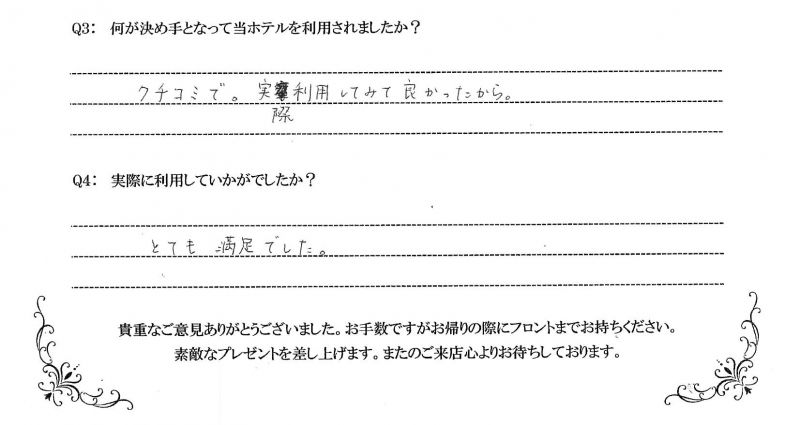 Q3: 何が決め手となって当ホテルを利用されましたか？
クチコミで。実際利用してみて良かったから。
Q4: 実際に利用していかがでしたか？
とても 満足でした。
貴重なご意見ありがとうございました。お手数ですがお帰りの際にフロントまでお持ちください。
素敵なプレゼントを差し上げます。またのご来店心よりお待ちしております。